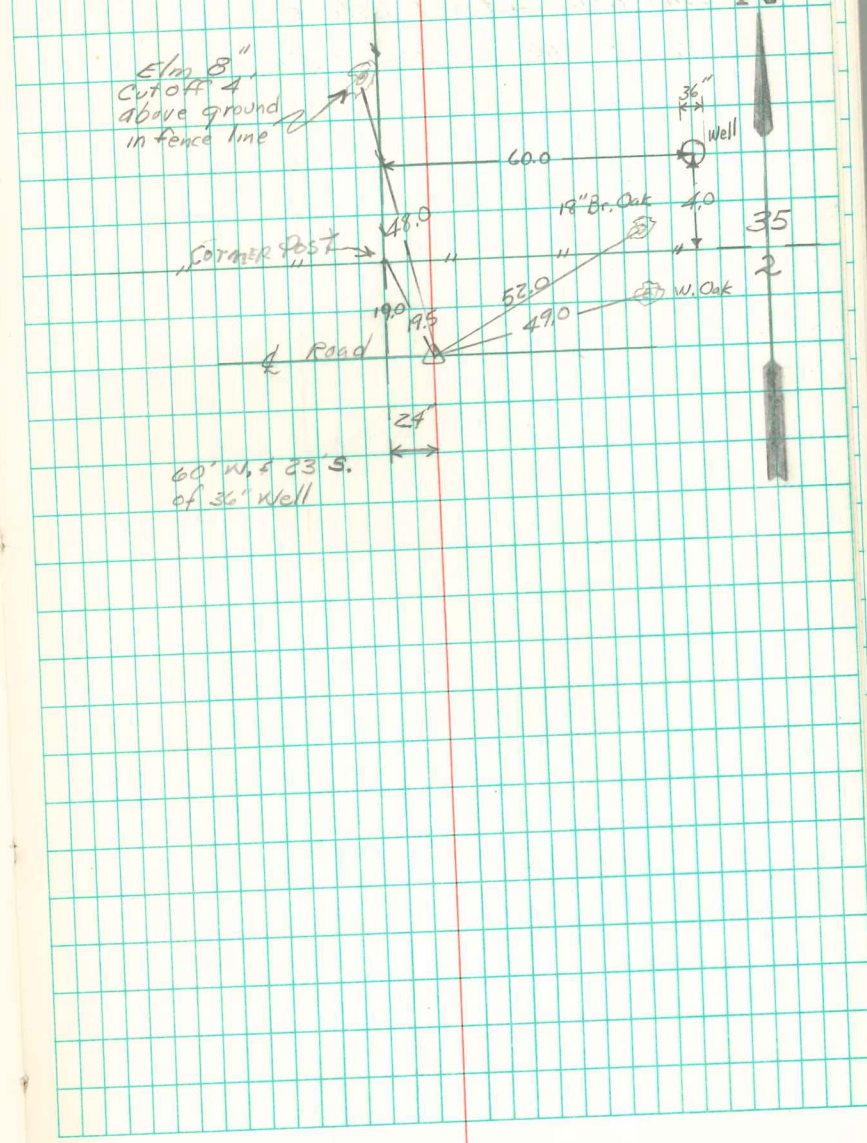 Elm 8"
Cut off 4'
above ground
in fence line
36"
Well
60.0
18" Br. Oak
4.0
35
2
48.0
Corner Post
52.0
W. Oak
19.0
19.5
49.0
℄ Road
24'
60' W. & 23' S.
of 36" Well